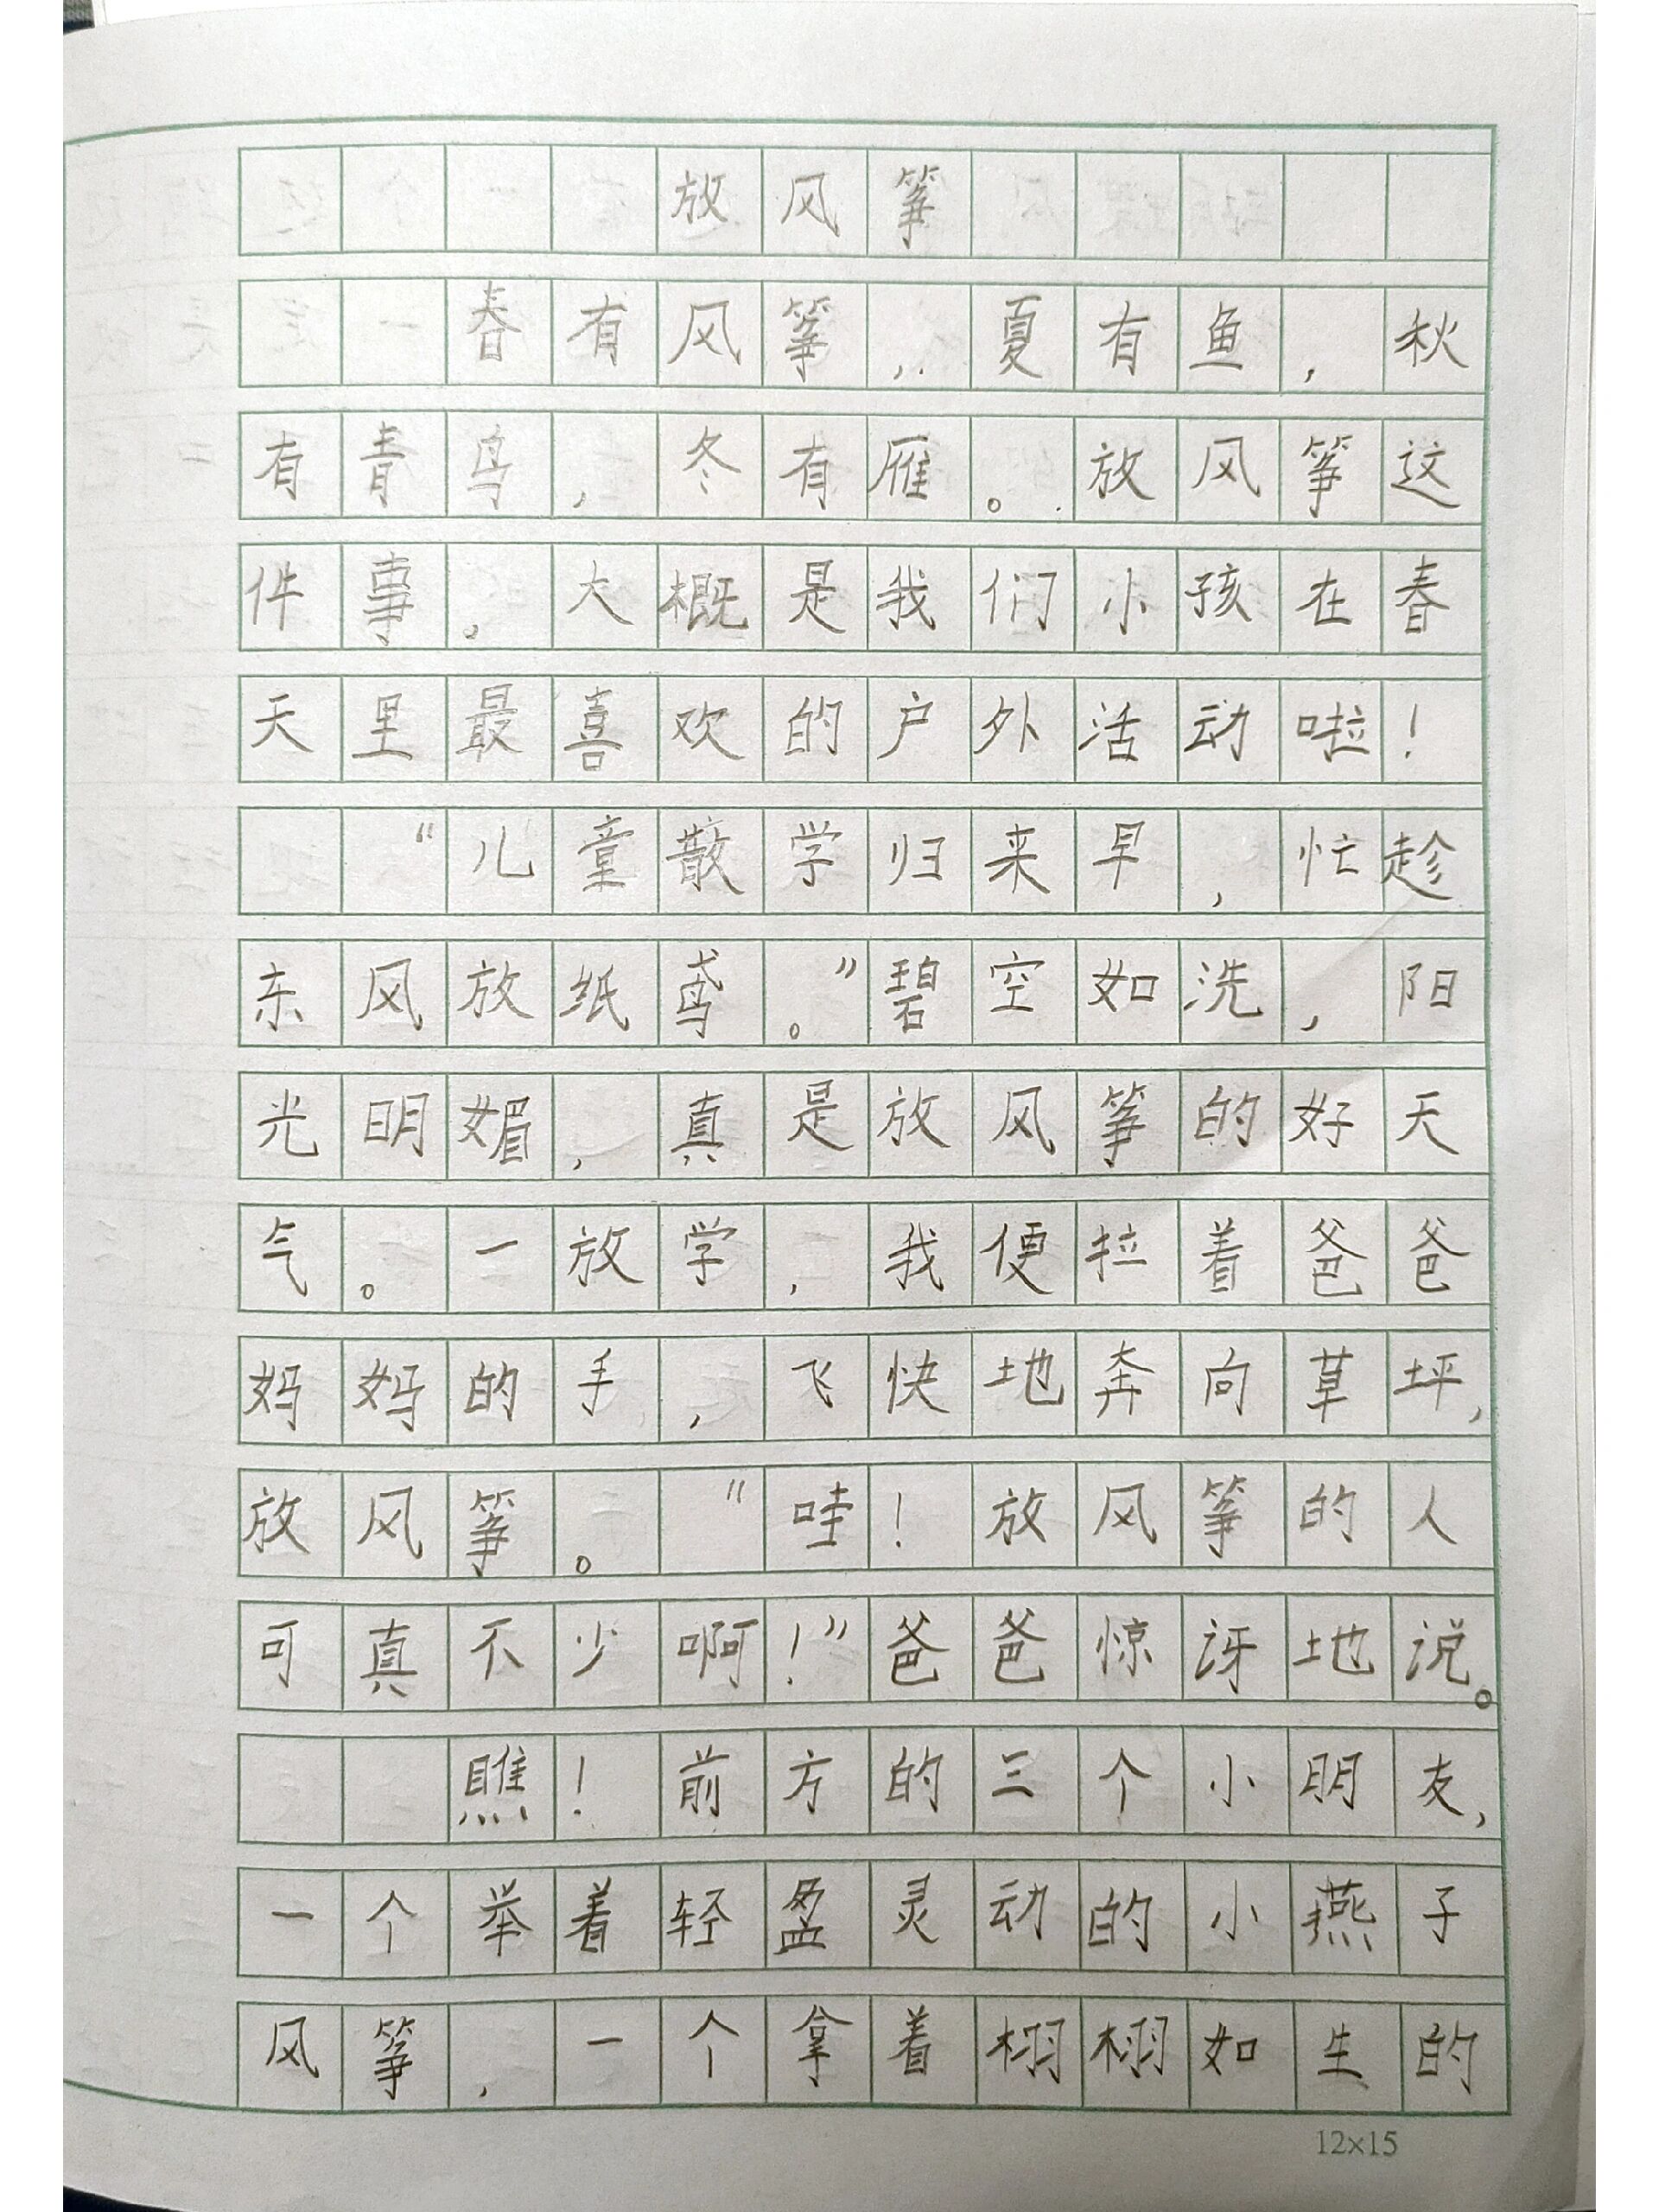 放风筝
春有风筝，夏有鱼，秋
有青鸟，冬有雁。放风筝这
件事。大概是我们小孩在春
天里最喜欢的户外活动啦！
“儿童散学归来早，忙趁
东风放纸鸢。”碧空如洗，阳
光明媚，真是放风筝的好天
气。一放学，我便拉着爸爸
妈妈的手，飞快地奔向草坪，
放风筝。“哇！放风筝的人
可真不少啊！”爸爸惊讶地说。
瞧！前方的三个小朋友，
一个举着轻盈灵动的小燕子
风筝，一个拿着栩栩如生的
12×15